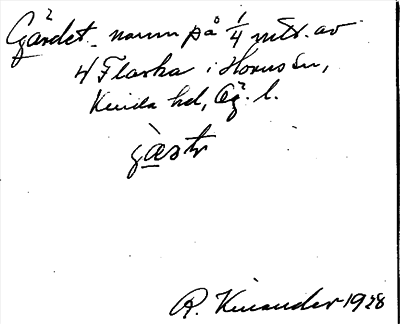 Gärdet. namn på 1/4 mtl. av
4 Flarka i Hornsån,
Kinda hd, Ög. l.
R. Kinander 1928